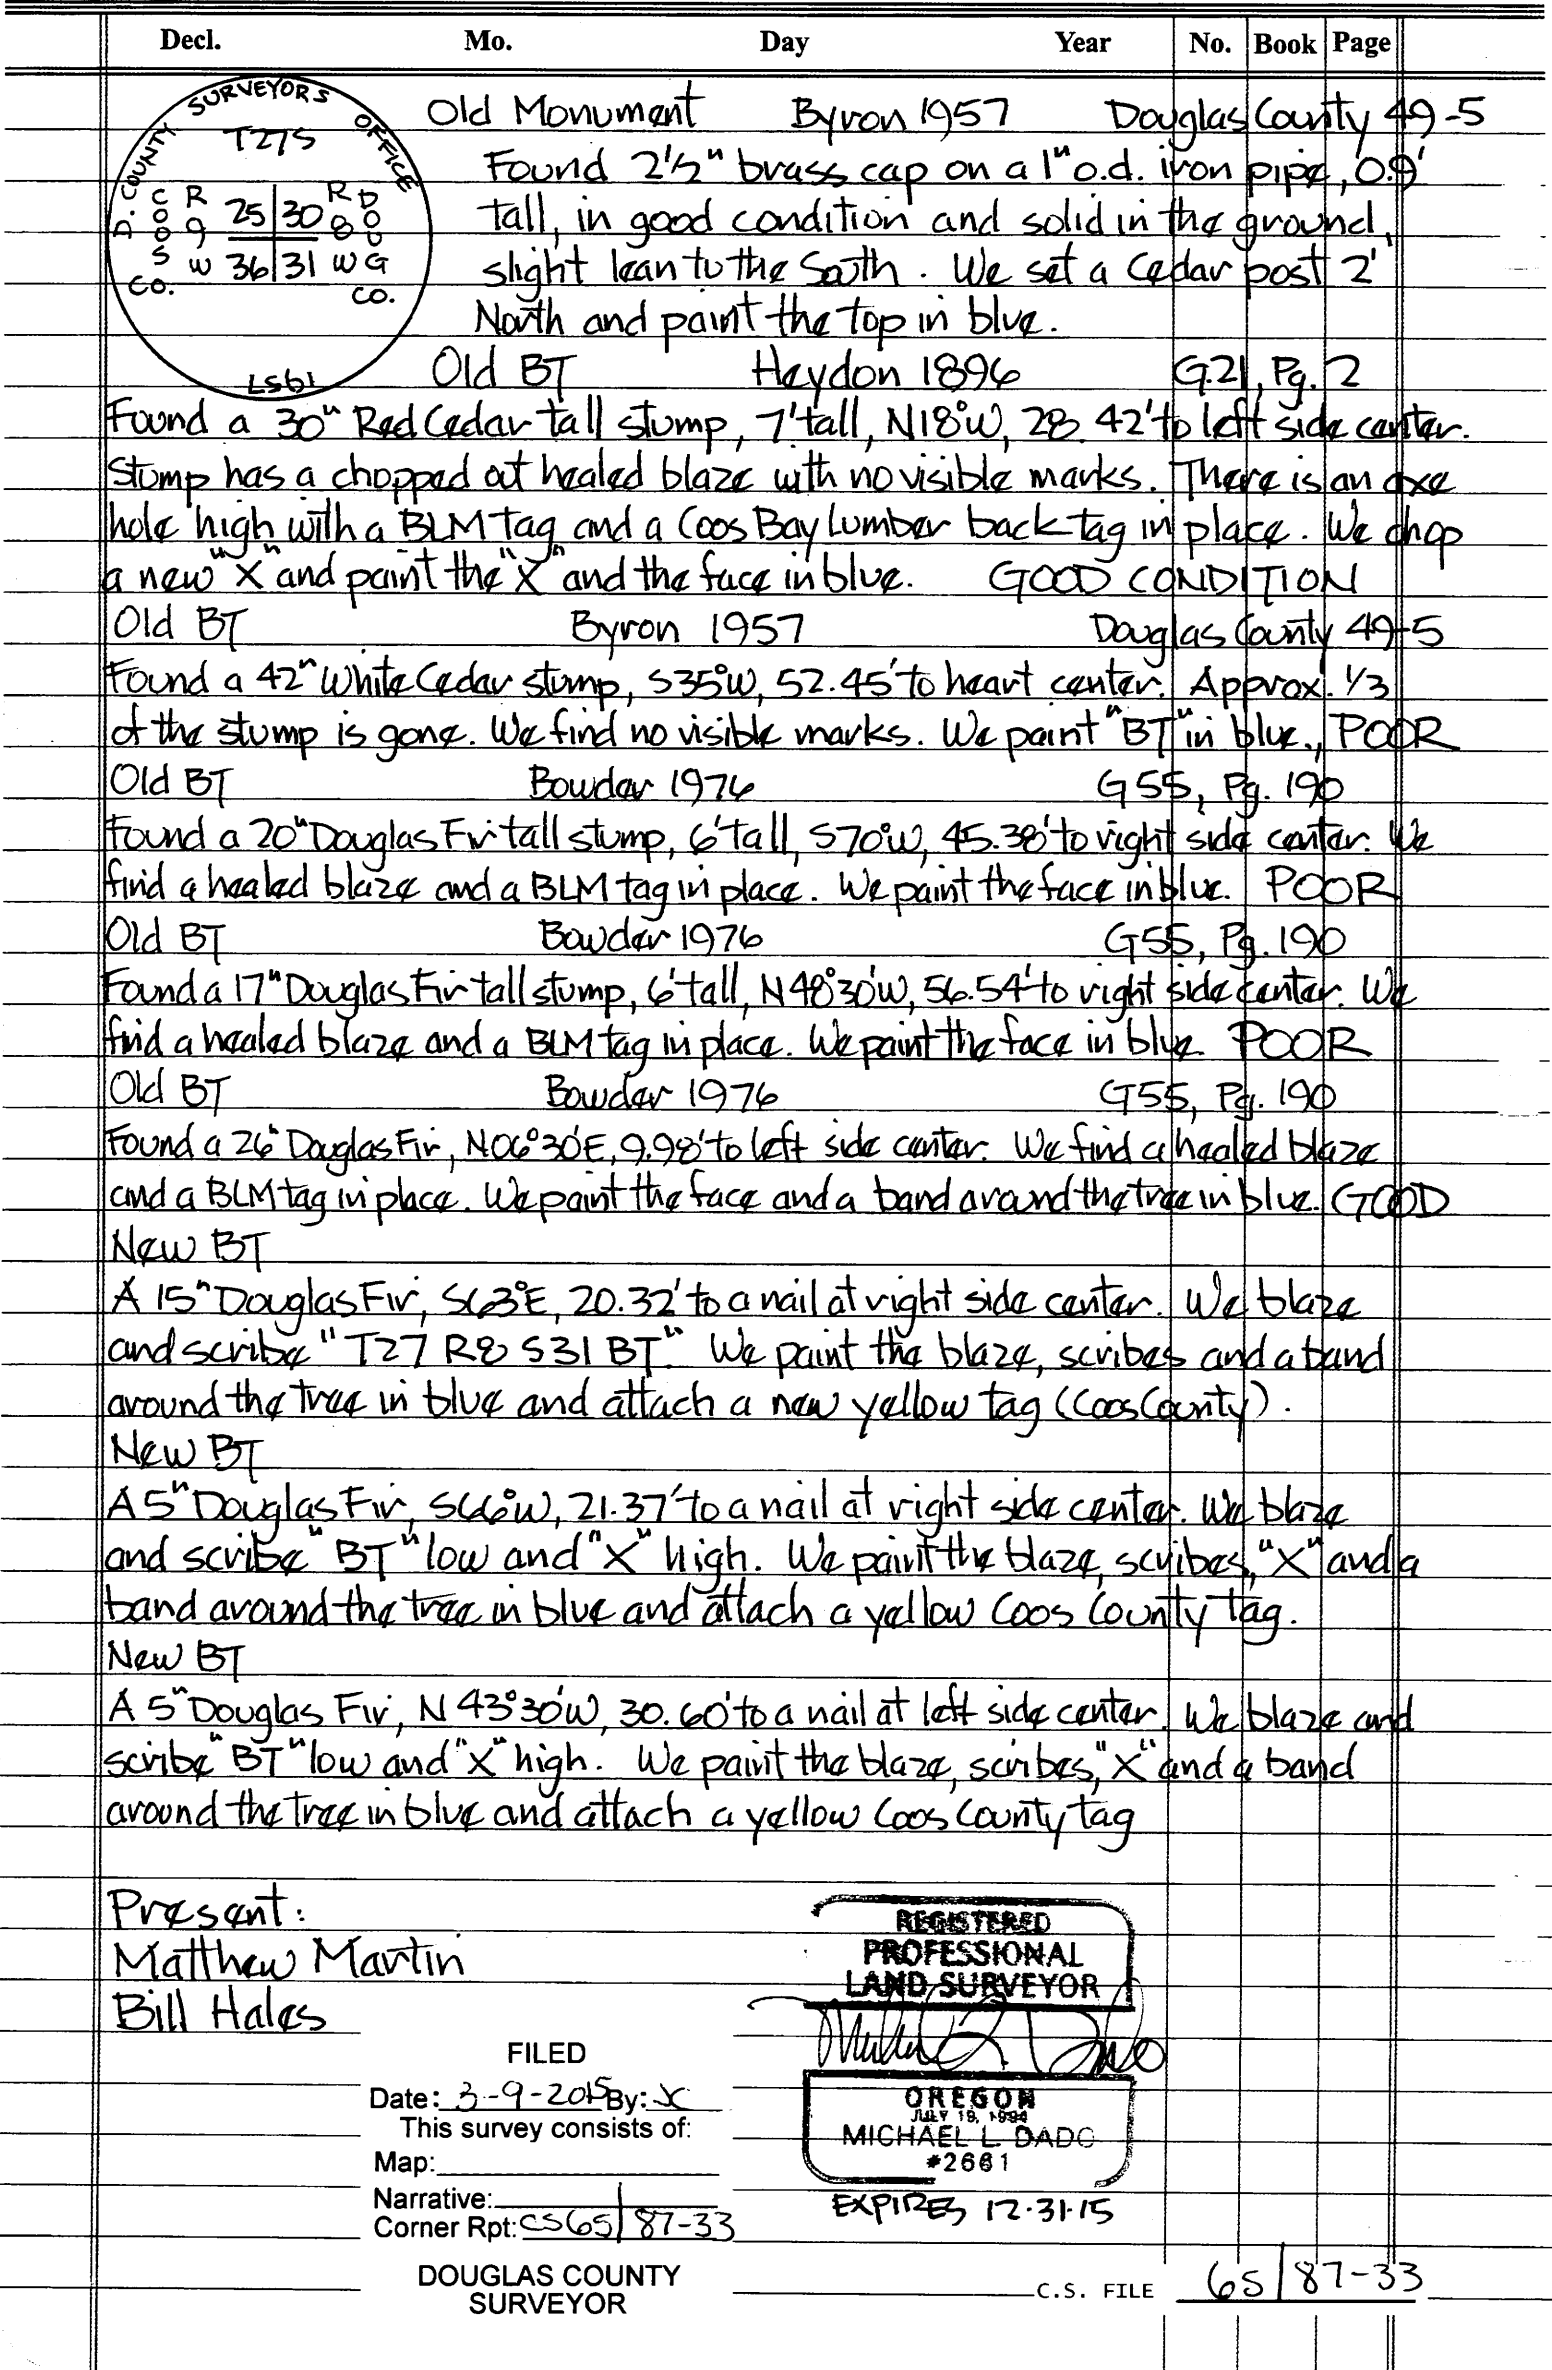 Decl. Mo. Day Year No. Book Page
D. COUNTY SURVEYORS OFFICE
T27S
COOS CO. R9W 25 30 R8W DOUG CO.
36 31
LS61
Old Monument Byron 1957 Douglas County 49-5
Found 2½" brass cap on a 1" o.d. iron pipe, 0.9'
tall, in good condition and solid in the ground,
slight lean to the South. We set a Cedar post 2'
North and paint the top in blue.
Old BT Haydon 1896 G.21, Pg. 2
Found a 30" Red Cedar tall stump, 7' tall, N18°W, 28.42' to left side center.
Stump has a chopped out healed blaze with no visible marks. There is an axe
hole high with a BLM tag and a Coos Bay Lumber back tag in place. We chop
a new "X" and paint the "X" and the face in blue. GOOD CONDITION
Old BT Byron 1957 Douglas County 49-5
Found a 42" White Cedar stump, S35°W, 52.45' to heart center. Approx. 1/3
of the stump is gone. We find no visible marks. We paint "BT" in blue., POOR
Old BT Bowder 1976 G55, Pg. 190
Found a 20" Douglas Fir tall stump, 6' tall, S70°W, 45.38' to right side center. We
find a healed blaze and a BLM tag in place. We paint the face in blue. POOR
Old BT Bowder 1976 G55, Pg. 190
Found a 17" Douglas Fir tall stump, 6' tall, N48°30'W, 56.54' to right side center. We
find a healed blaze and a BLM tag in place. We paint the face in blue. POOR
Old BT Bowder 1976 G55, Pg. 190
Found a 26" Douglas Fir, N06°30'E, 9.98' to left side center. We find a healed blaze
and a BLM tag in place. We paint the face and a band around the tree in blue. GOOD
New BT
A 15" Douglas Fir, S63°E, 20.32' to a nail at right side center. We blaze
and scribe "T27 R8 S31 BT." We paint the blaze, scribes and a band
around the tree in blue and attach a new yellow tag (Coos County).
New BT
A 5" Douglas Fir, S66°W, 21.37' to a nail at right side center. We blaze
and scribe "BT" low and "X" high. We paint the blaze, scribes, "X" and a
band around the tree in blue and attach a yellow Coos County Tag.
New BT
A 5" Douglas Fir, N43°30'W, 30.60' to a nail at left side center. We blaze and
scribe "BT" low and "X" high. We paint the blaze, scribes, "X" and a band
around the tree in blue and attach a yellow Coos County tag
Present:
Matthew Martin
Bill Hales
REGISTERED
PROFESSIONAL
LAND SURVEYOR
OREGON
JULY 19, 1994
MICHAEL L. DADO
#2661
EXPIRES 12-31-15
FILED
Date: 3-9-2015 By:
This survey consists of:
Map:
Narrative:
Corner Rpt: CS65/87-33
DOUGLAS COUNTY
SURVEYOR
C.S. FILE 65/87-33